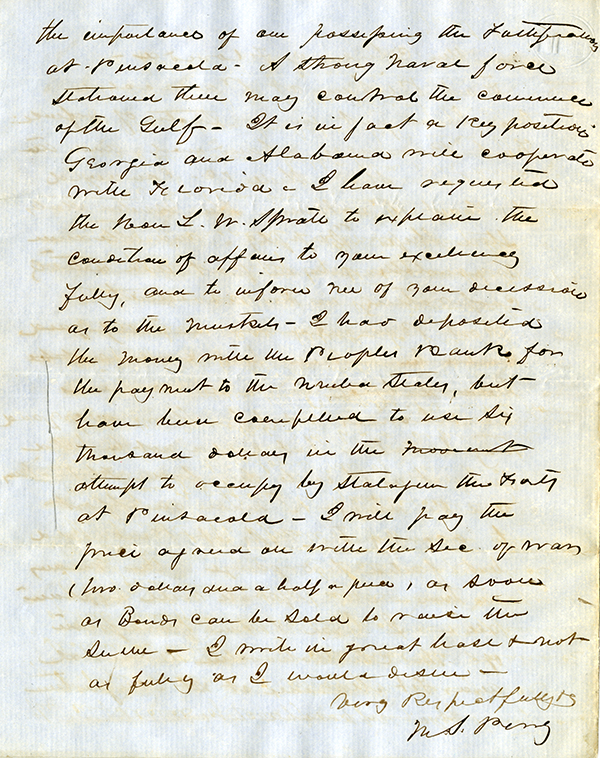 the importance of our possessing the Fortifications
at Pensacola - A strong Naval force
stationed there may control the commerce
of the Gulf - It is in fact a Key position
Georgia and Alabama will cooperate
with Florida - I have requested
the Hon L. W. Spratt to explain the
condition of affairs to your excellency
fully, and to inform me of your decission
as to the muskets - I had deposited
the money with the Peoples Bank for
the payment to the United States, but
have been compelled to use six
thousand dollars in the movement
attempt to occupy by Stratagem the Forts
at Pensacola - I will pay the
price agreed on with the Sec. of War
(two dollars and a half a piece, as soon
as Bonds can be sold to raise the
Same - I write in great hast & not
as fully as I would desire -
Very Respectfully
M. S. Perry